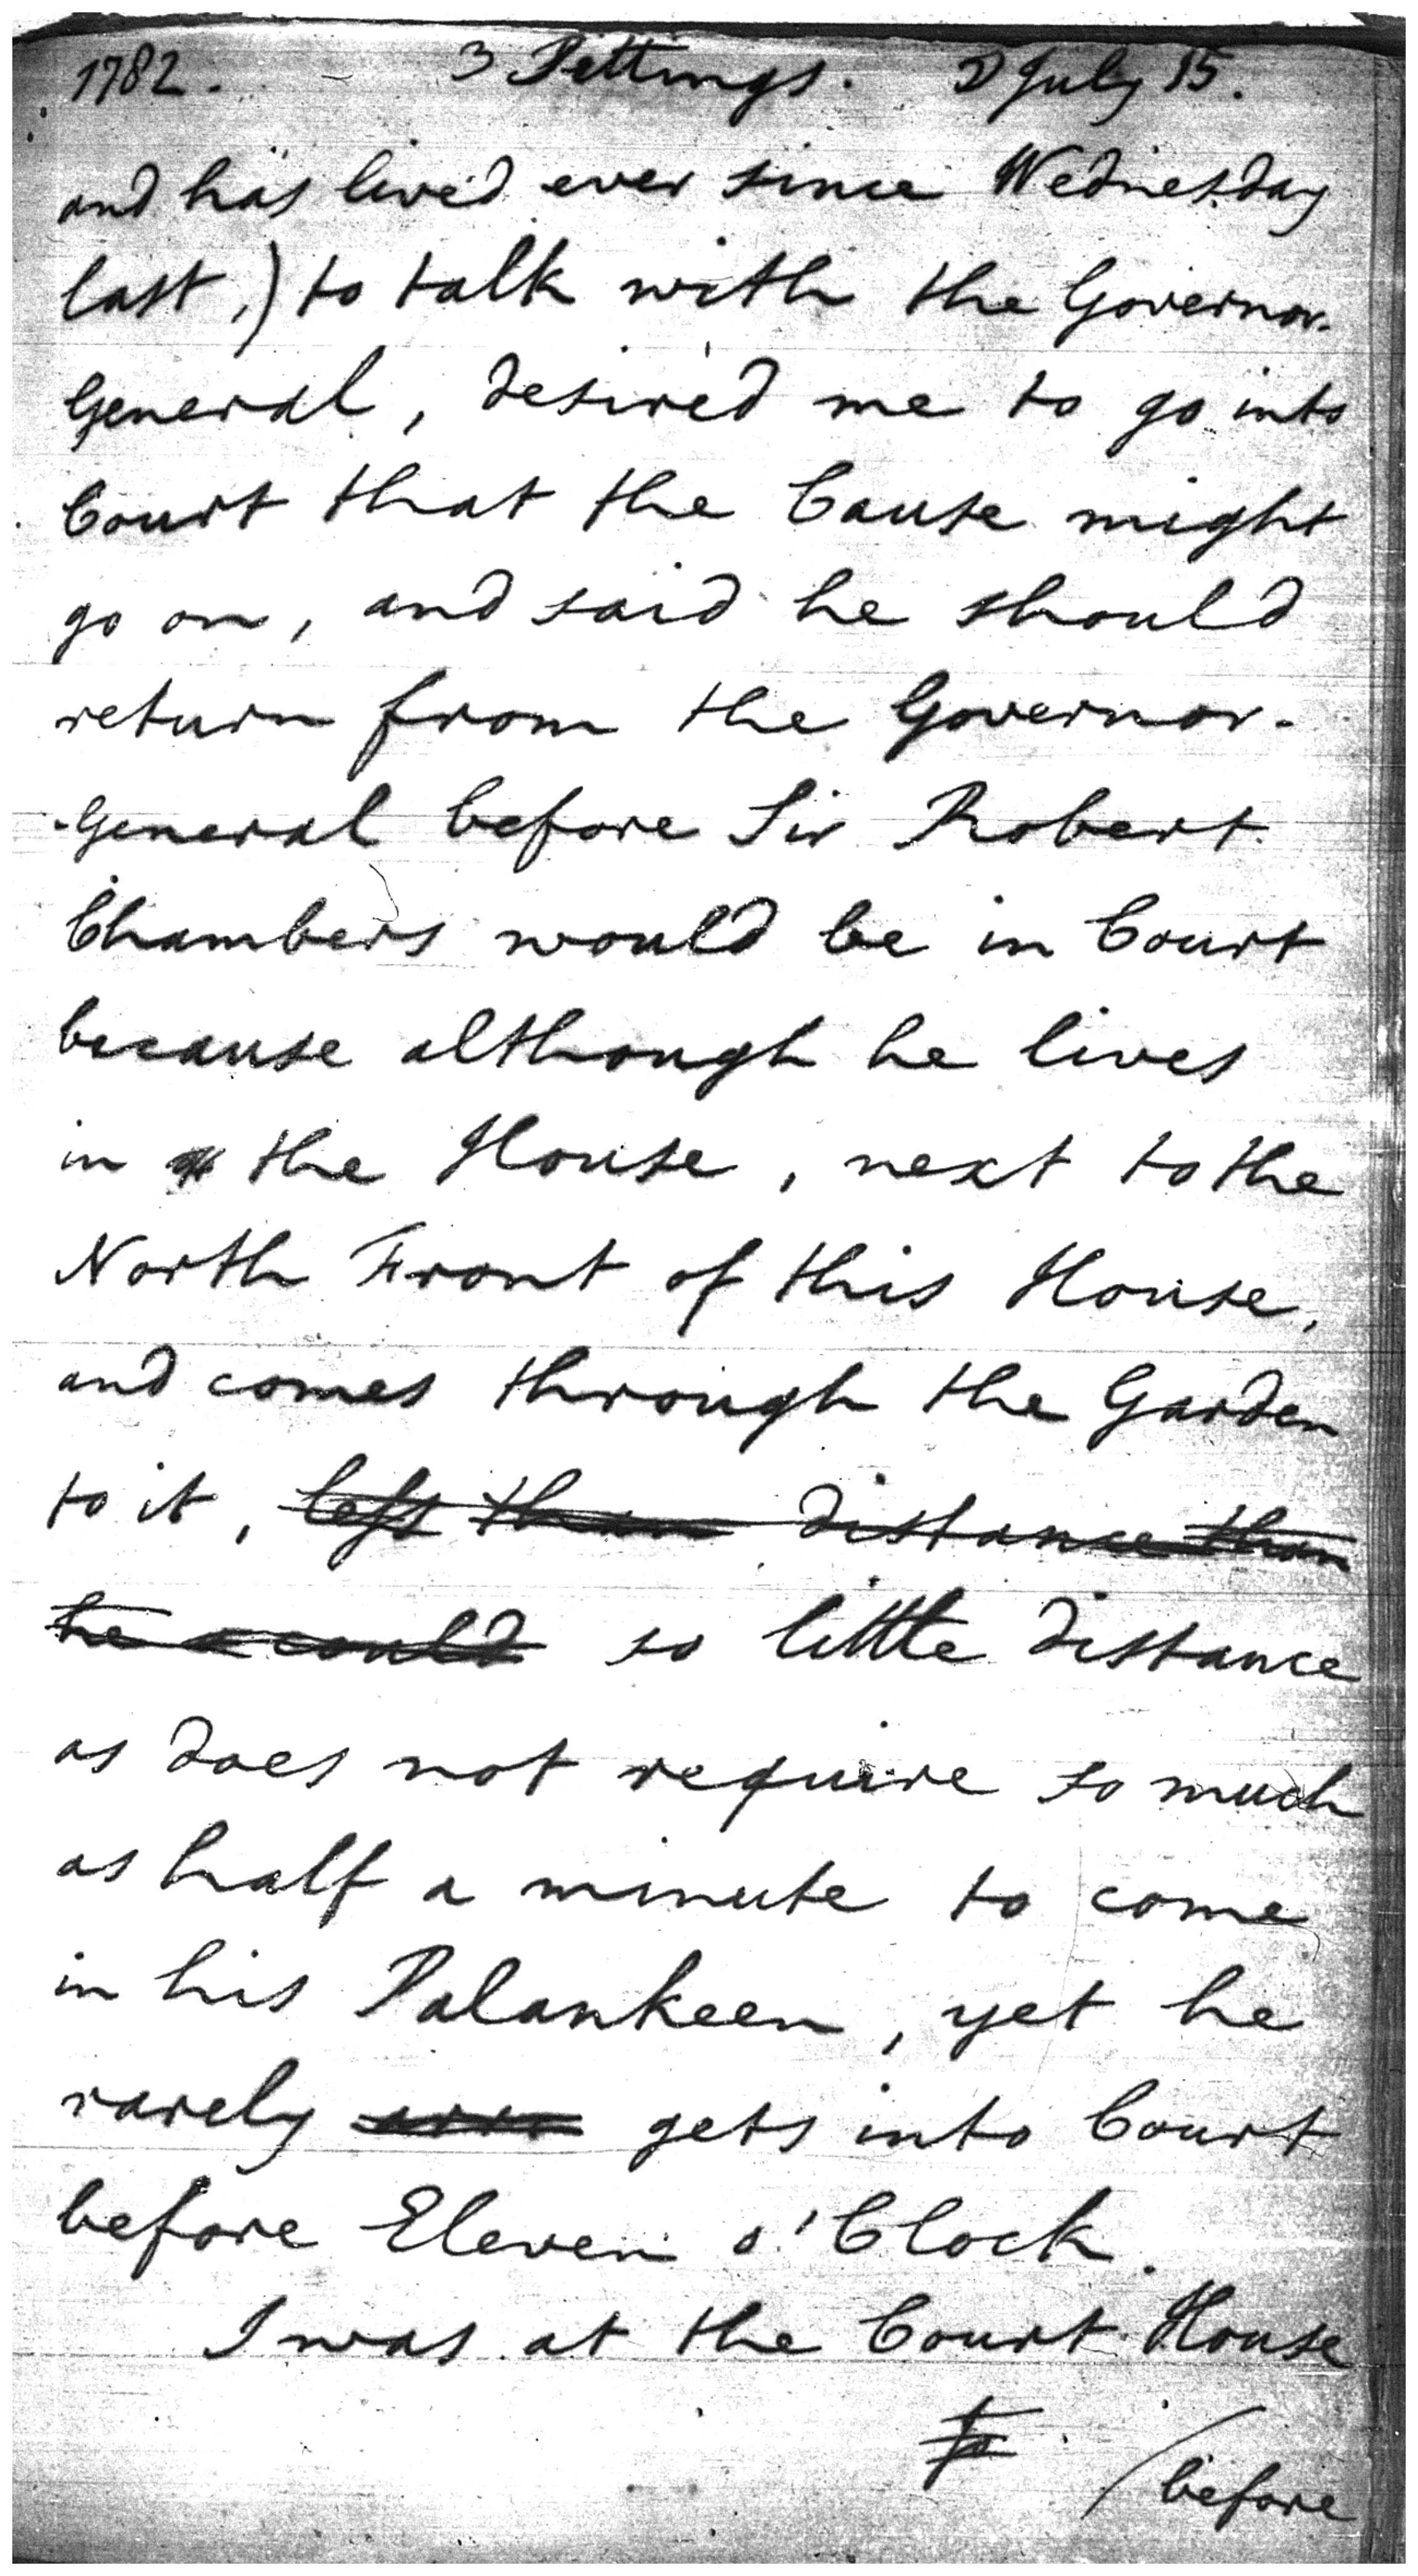 1782. 3 Pettings. ☽ July 15.
and has lived ever since Wednesday
last,) to talk with the Governor-
General, desired me to go into
Court that the Cause might
go on, and said he should
return from the Governor-
-General before Sir Robert
Chambers would be in Court
because although he lives
in the House, next to the
North Front of this House,
and comes through the Garden
to it, less than distance than
he could so little distance
as does not require so much
as half a minute to come
in his Palankeen, yet he
rarely gets into Court
before Eleven o'Clock.
I was at the Court House
to
/before